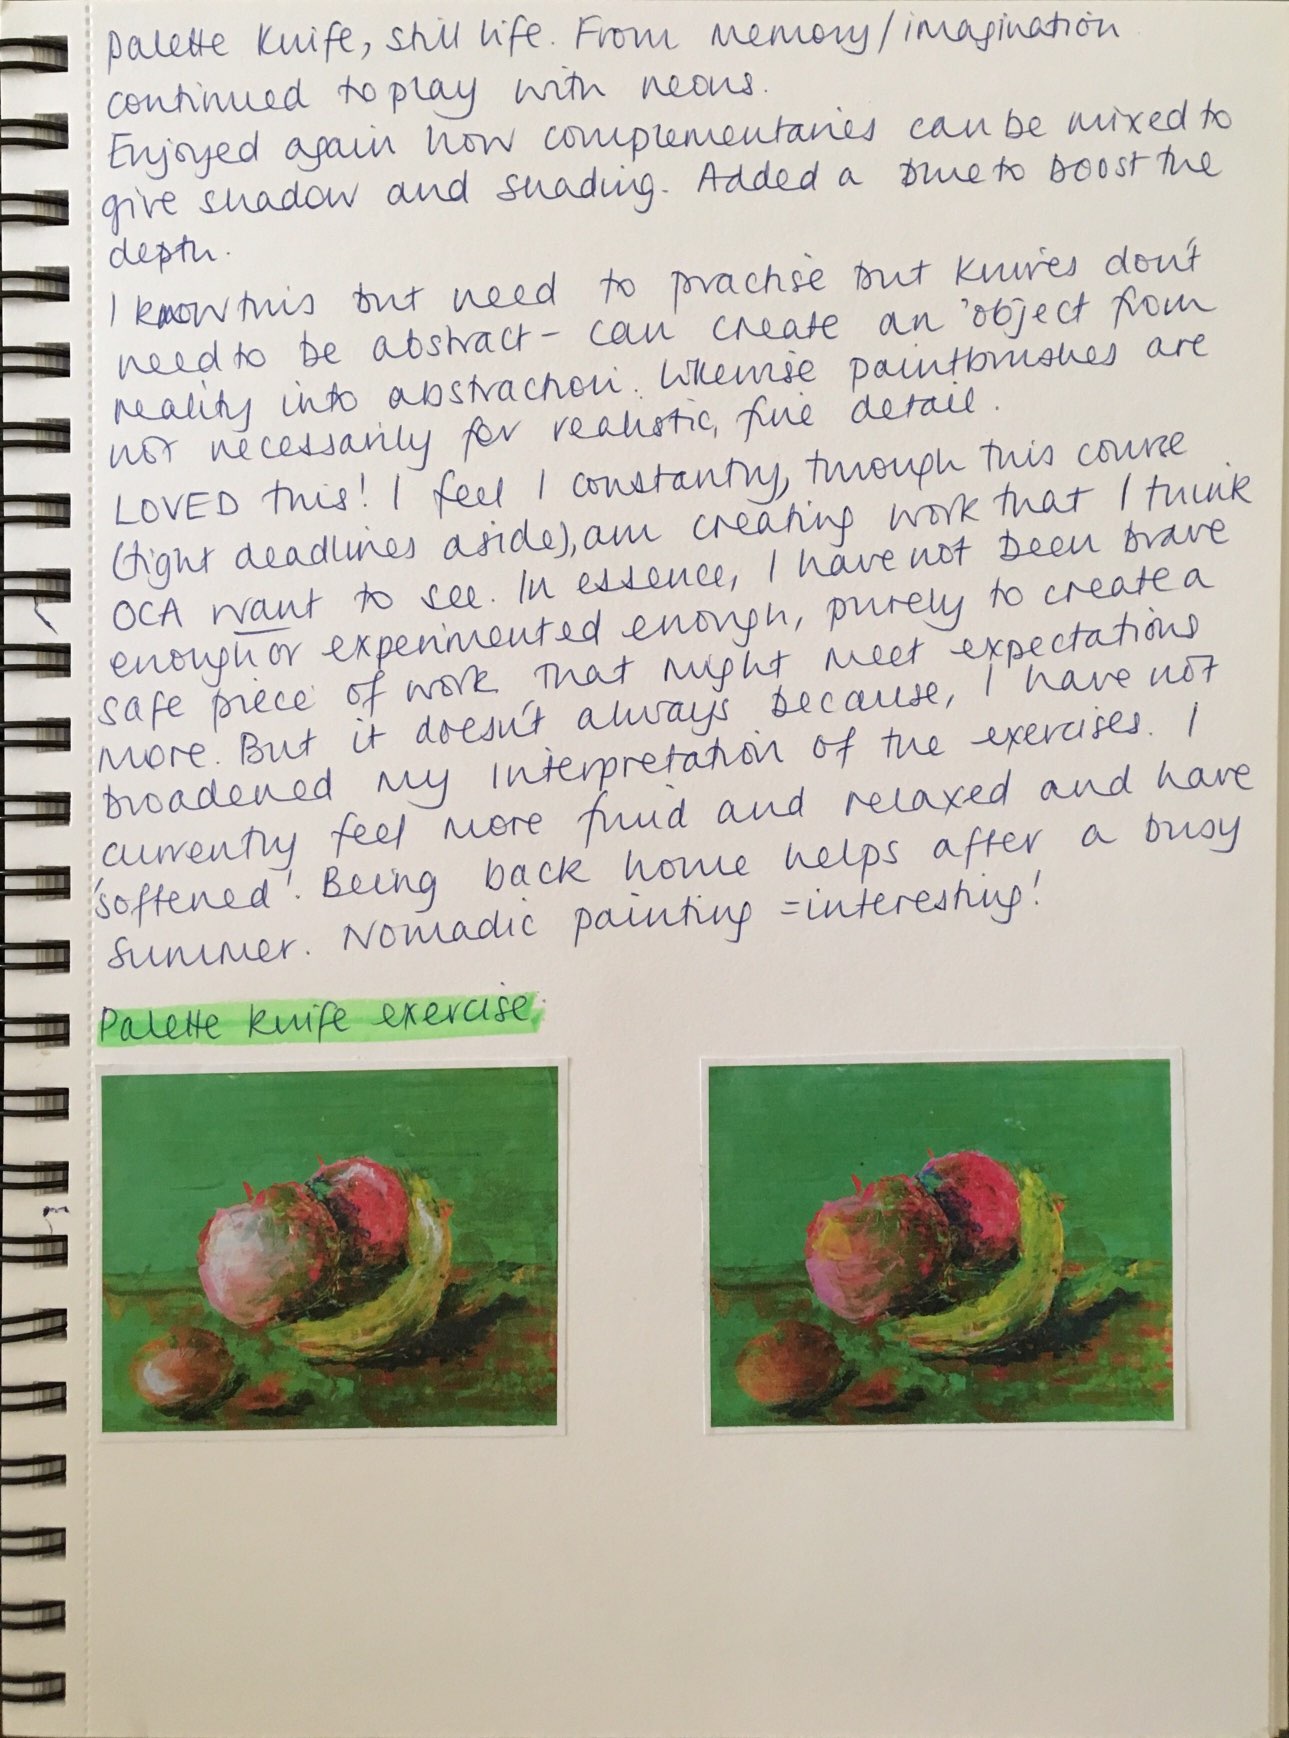 Palette Knife, Still life. From memory/imagination
continued to play with neons.
Enjoyed again how complementaries can be mixed to
give shadow and shading. Added a blue to boost the
depth.
I know this but need to practise but knives don't
need to be abstract - can create an 'object from
reality into abstraction. Likewise paintbrushes are
not necessarily for realistic, fine detail.
LOVED this! I feel I constantly, through this course
(tight deadlines aside), am creating work that I think
OCA want to see. In essence, I have not been brave
enough or experimented enough, purely to create a
safe piece of work that might meet expectations
more. But it doesn't always because, I have not
broadened my interpretation of the exercises. I
currently feel more fluid and relaxed and have
'softened'. Being back home helps after a busy
Summer. Nomadic painting = interesting!
Palette Knife exercise.